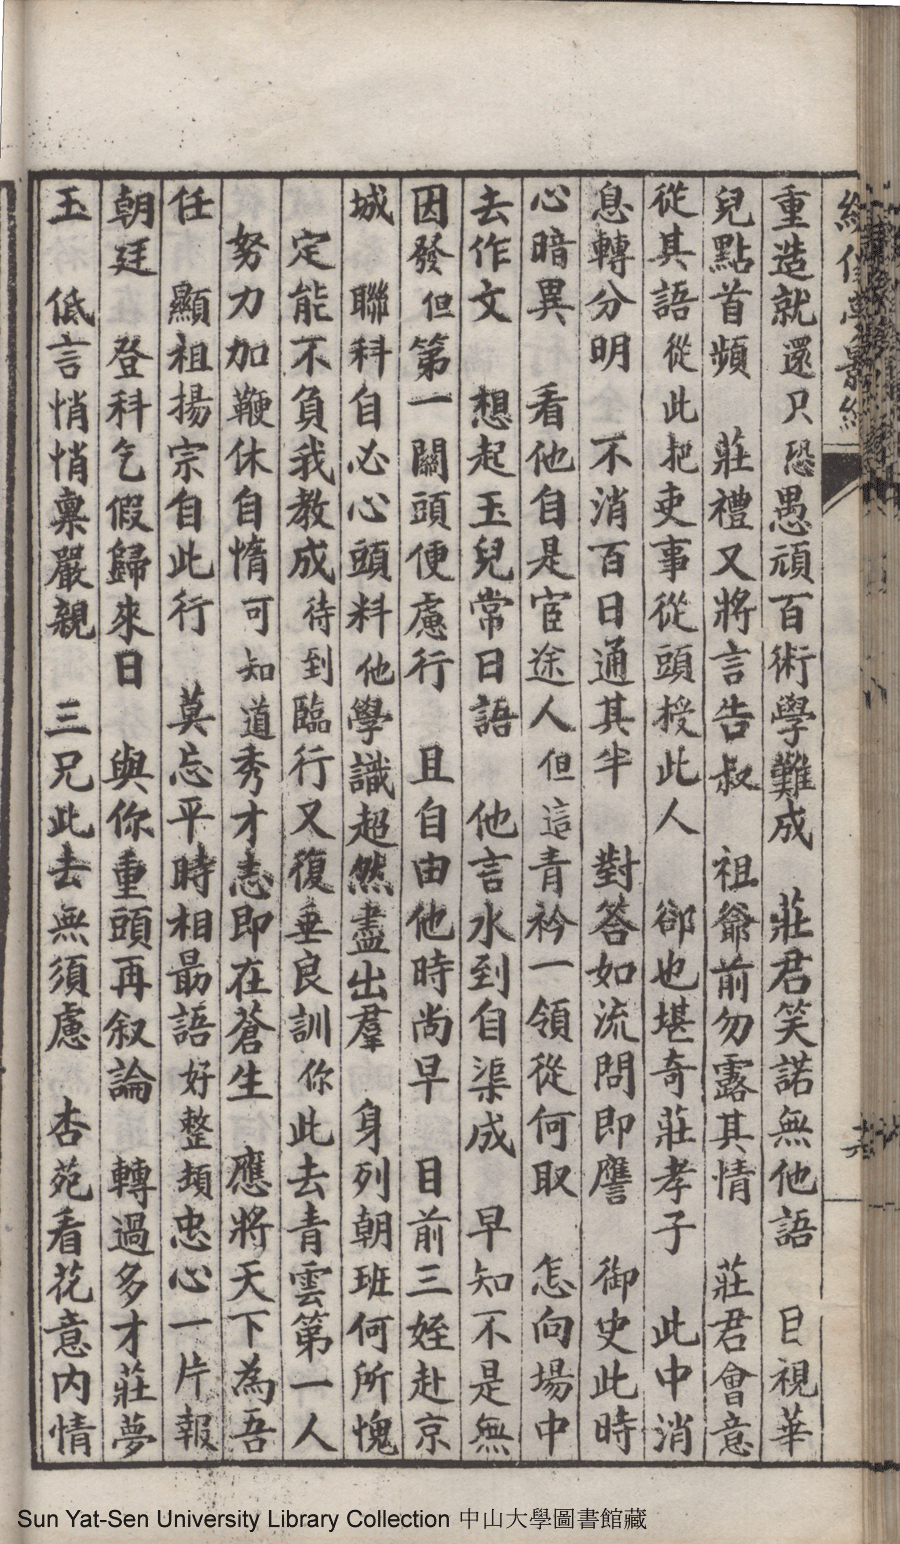 重造就還只恐愚頑百術學難成　莊君笑諾無他語　目視華
兒點首頻　莊禮又將言告叔　祖爺前勿露其情　莊君會意
從其語從此把吏事從頭授此人　郤也堪奇莊孝子　此中消
息轉分明　不消百日通其半　對答如流問即譍　御史此時
心暗異　看他自是宦途人但這青衿一領從何取　怎向場中
去作文　想起玉兒常日語　他言水到自渠成　早知不是無
因發但第一關頭便慮行　且自由他時尚早　目前三姪赴京
城　聯科自必心頭料他學識超然盡出羣　身列朝班何所愧
定能不負我教成待到臨行又復垂良訓你此去青雲第一人
努力加鞭休自惰可知道秀才恚即在蒼生　應將天下為吾
任　顯祖揚宗自此行　莫忘平時相勗語好整頓忠心一片報
朝廷　登科乞假歸來日　與你重頭再叙論　轉過多才莊夢
玉　低言悄悄稟嚴親　三兄此去無須慮　杏苑看花意內情
Sun Yat-Sen University Library Collection 中山大學圖書館藏